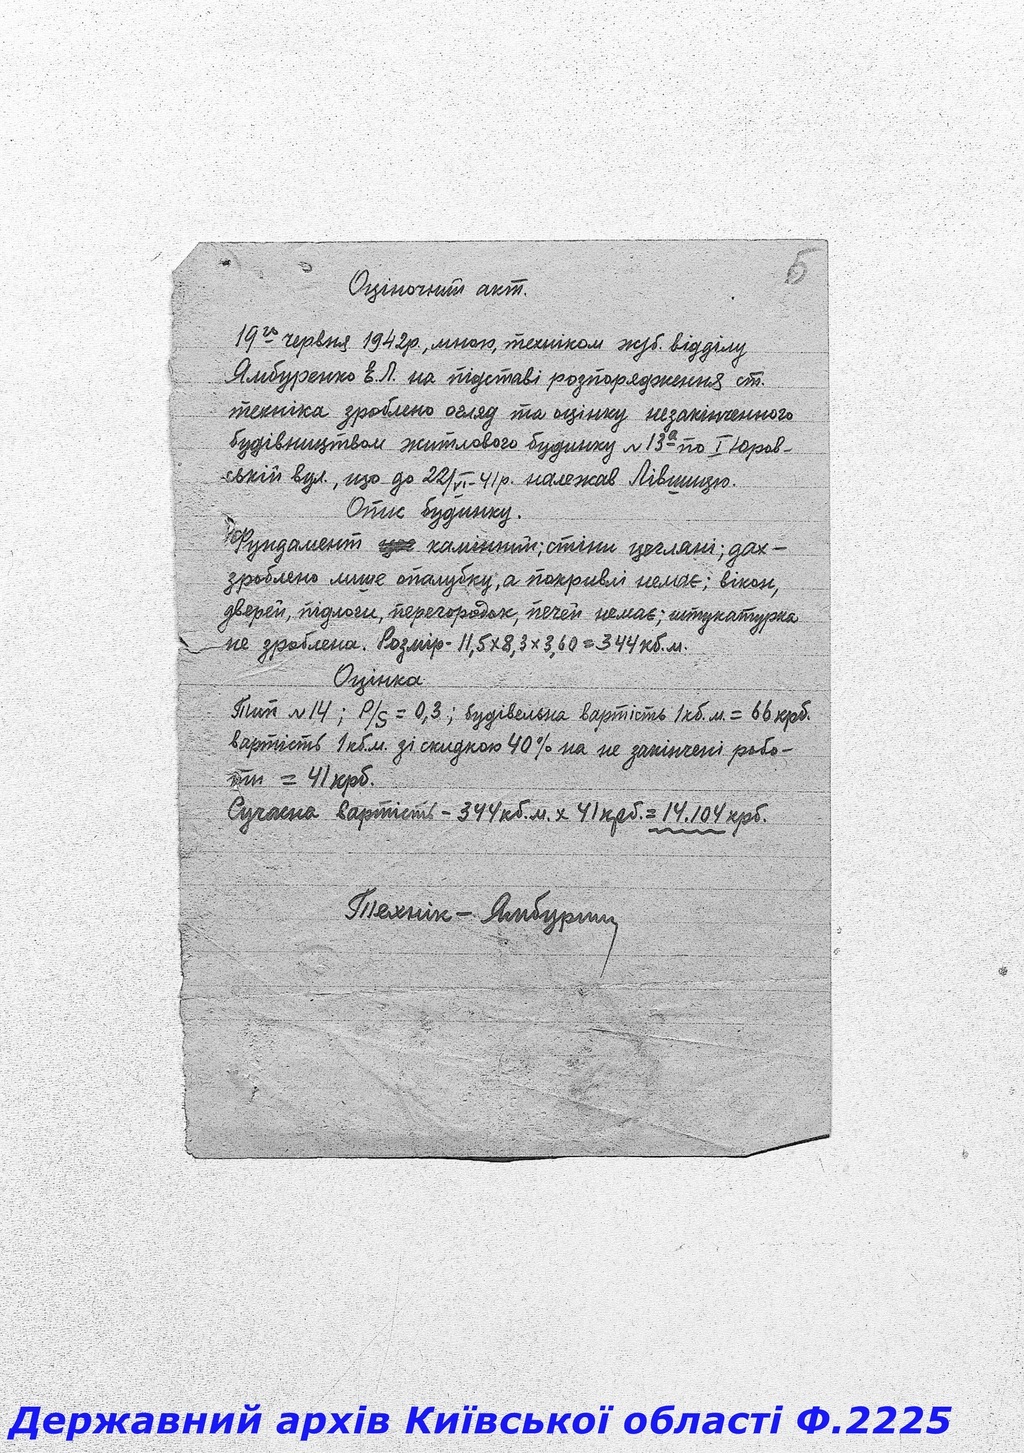 5
Оціночний акт.
19го червня 1942р., мною, техніком жуб. відділу
Ямбуренко Є.Л. на підставі розпорядження ст.
техніка зроблено огляд та оцінку незакінченого
будівництвом житлового будинку №13а по І Юров-
ській вул., що до 22/VI-41р. належав Лівшицю.
Опис будинку.
Фундамент камінний; стіни цегляні; дах-
зроблено лише опалубку, а покривлі немає; вікон,
дверей, підлоги, перегородок, печей немає; штукатурка
не зроблена. Розмір- 11,5х8,3х3,60=344кб.м.
Оцінка
Тип №14; P/S = 0,3; будівельна вартість 1кб.м. = 66 крб.
вартість 1кб.м. зі скидкою 40% на не закінчені робо-
ти = 41 крб.
Сучасна вартість - 344кб.м. х 41крб.= 14.104 крб.
Технік -
Державний архів Київської області Ф.2225